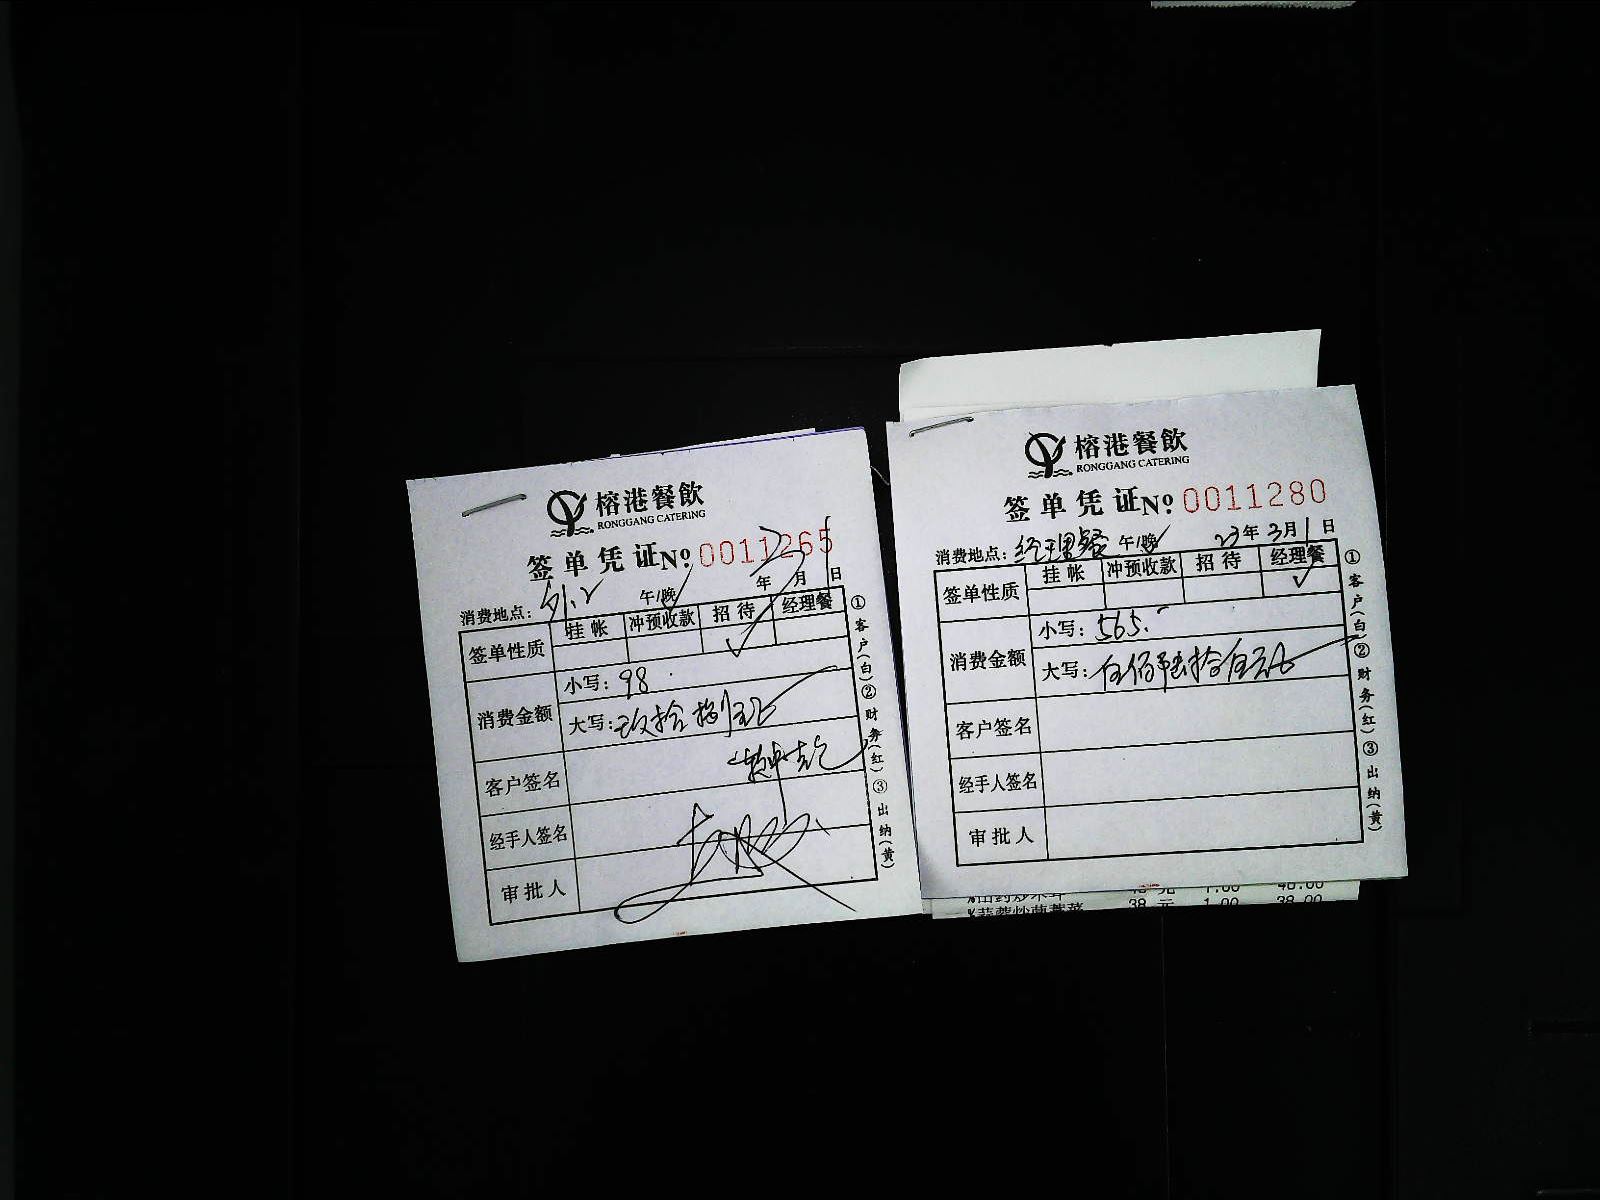 榕港餐飲
RONGGANG CATERING
签单凭证No 0011265
年 3月1日
消费地点: 午/晚
签单性质 挂帐 冲预收款 招待 经理餐
✓
消费金额
小写: 98.
大写: 玖拾捌元
客户签名
经手人签名
审批人
①客户(白)②财务(红)③出纳(黄)
榕港餐飲
RONGGANG CATERING
签单凭证No 0011280
消费地点: 经理餐 午/晚 23年3月1日
签单性质 挂帐 冲预收款 招待 经理餐
✓
消费金额
小写: 565.
大写: 伍佰陆拾伍元
客户签名
经手人签名
审批人
①客户(白)②财务(红)③出纳(黄)
38 元 1.00 38.00